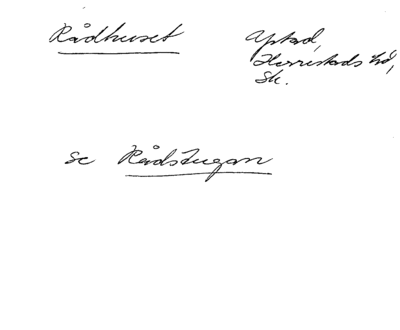 Rådhuset
Ystad,
Herrestads hd,
Sk.
se Rådstugan